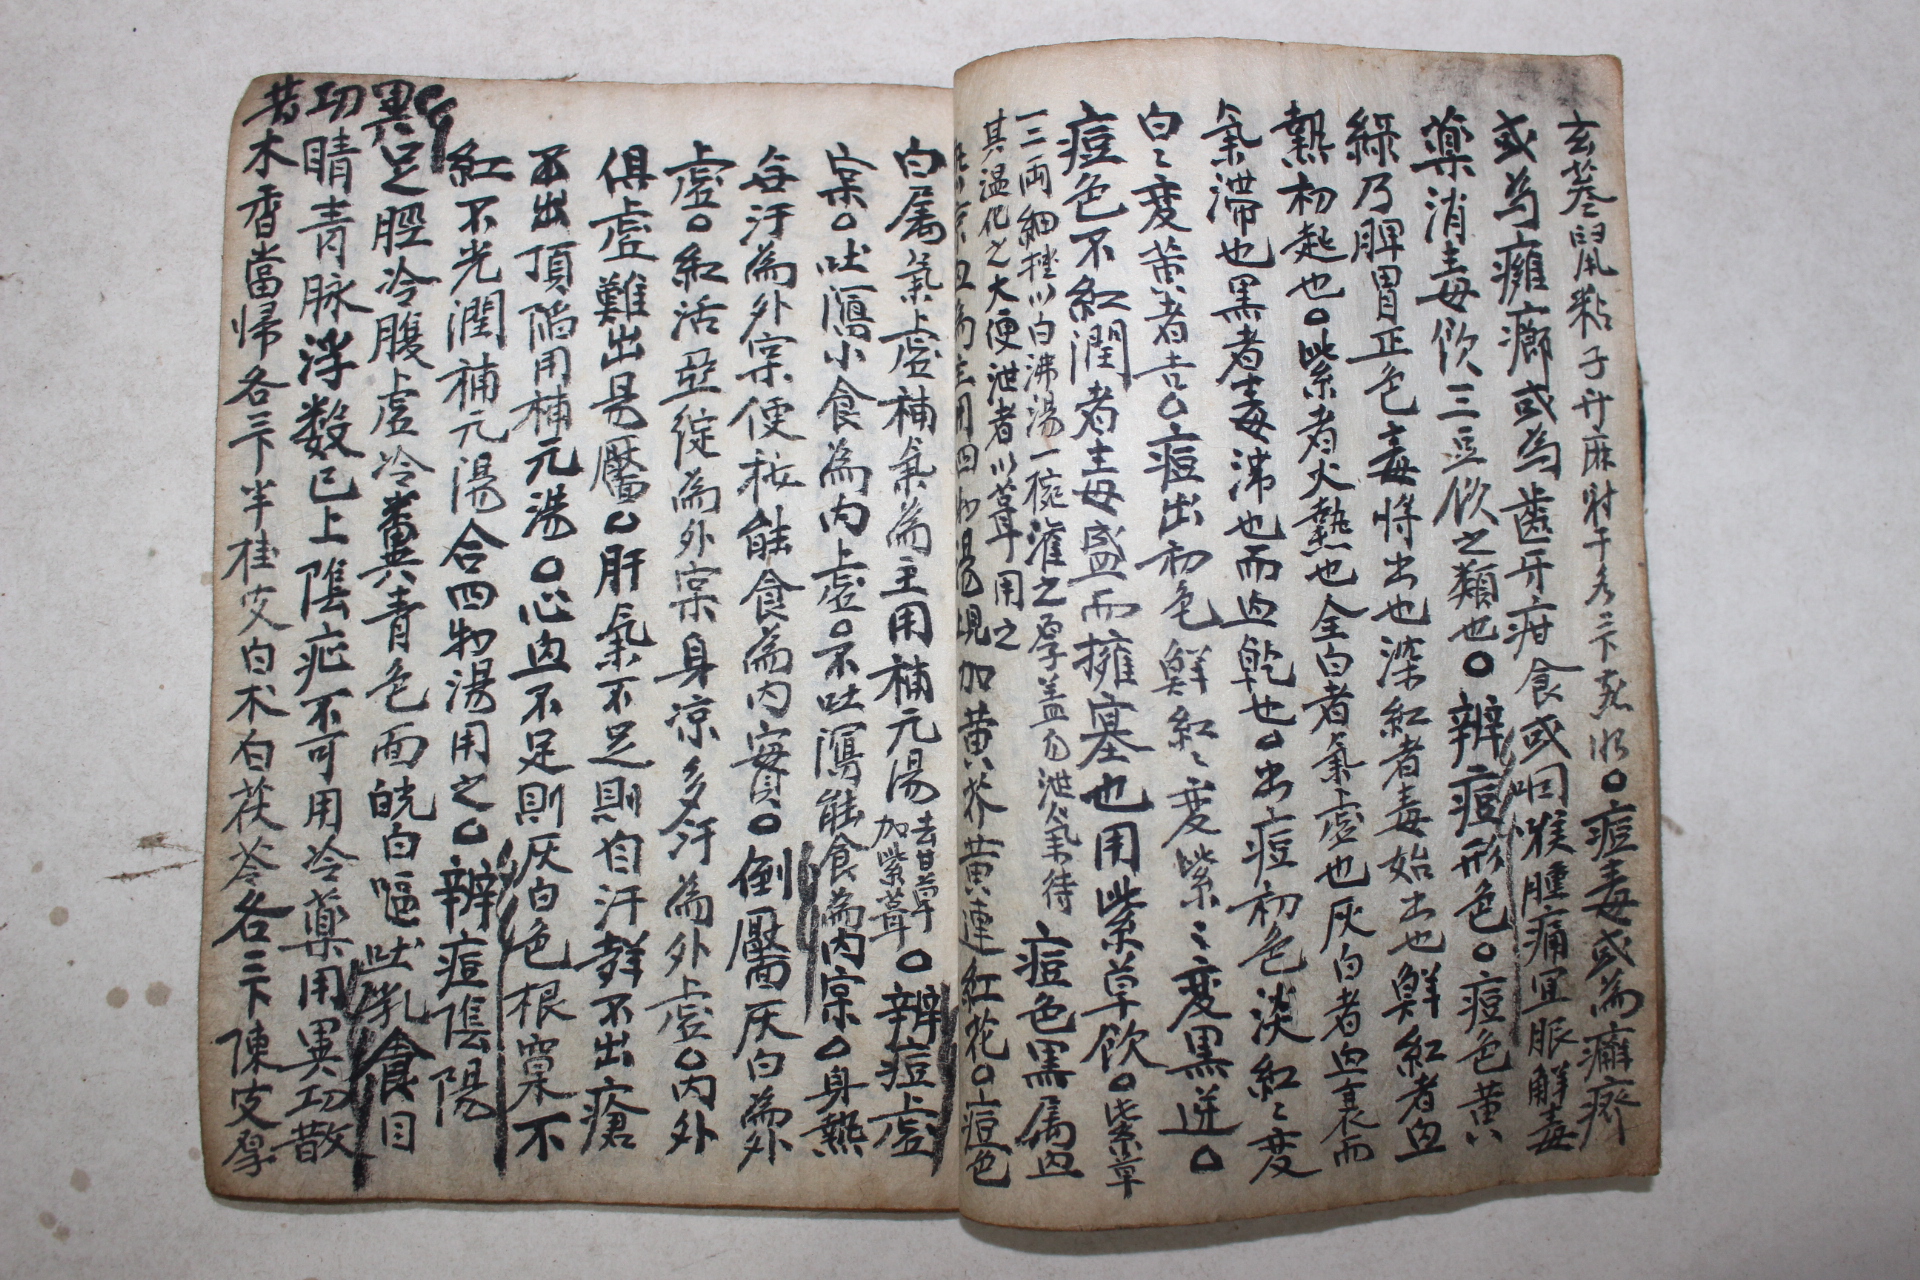 玄蔘鼠粘子升麻射干各二卞煎水○痘毒或爲癰瘠
或爲癰癤或爲齒牙疳食或咽喉腫痛宜服解毒
藥消毒飮三豆飮之類也○辨痘形色○痘色黃
綠乃脾胃正色毒將出也深紅者毒始出也鮮紅者血
熱初起也○紫者火熱也全白者氣虛也灰白者血衰而
氣滯也黑者毒滯也而血乾也○出痘初色淡紅〻變
白〻變黃者吉○痘出初色鮮紅〻變紫〻變黑逆○
痘色不紅潤者毒盛而擁塞也用紫草飮○紫草
一二兩細挫以白沸湯一椀灌之厚盖勿泄氣待
其溫化之大便泄者以茸用之
痘色黑属血
血爲主用四物湯 加黃芩黃連紅花○痘色
白属氣虛補氣爲主用補元湯去甘草加紫茸○辨痘虛
宲○吐瀉小食爲內虛○不吐瀉能食爲內宲○身熱
無汗爲外宲便秘能食爲內實○倒靨灰白爲外
虛○紅活亞綻爲外宲身凉多汗爲外虛○內外
俱虛難出易靨○肝氣不足則自汗 不出瘡
不出頂陷用補元湯○心血不足則灰白色根窠不
紅不光潤補元湯合四物湯用之○辨痘陰陽
足脛冷腹虛冷糞靑色面㿠白嘔吐乳食目
睛靑脉浮數已上陰症不可用冷藥用異功散
異功
木香當歸各三卞半桂皮白朮白茯苓各二卞陳皮厚